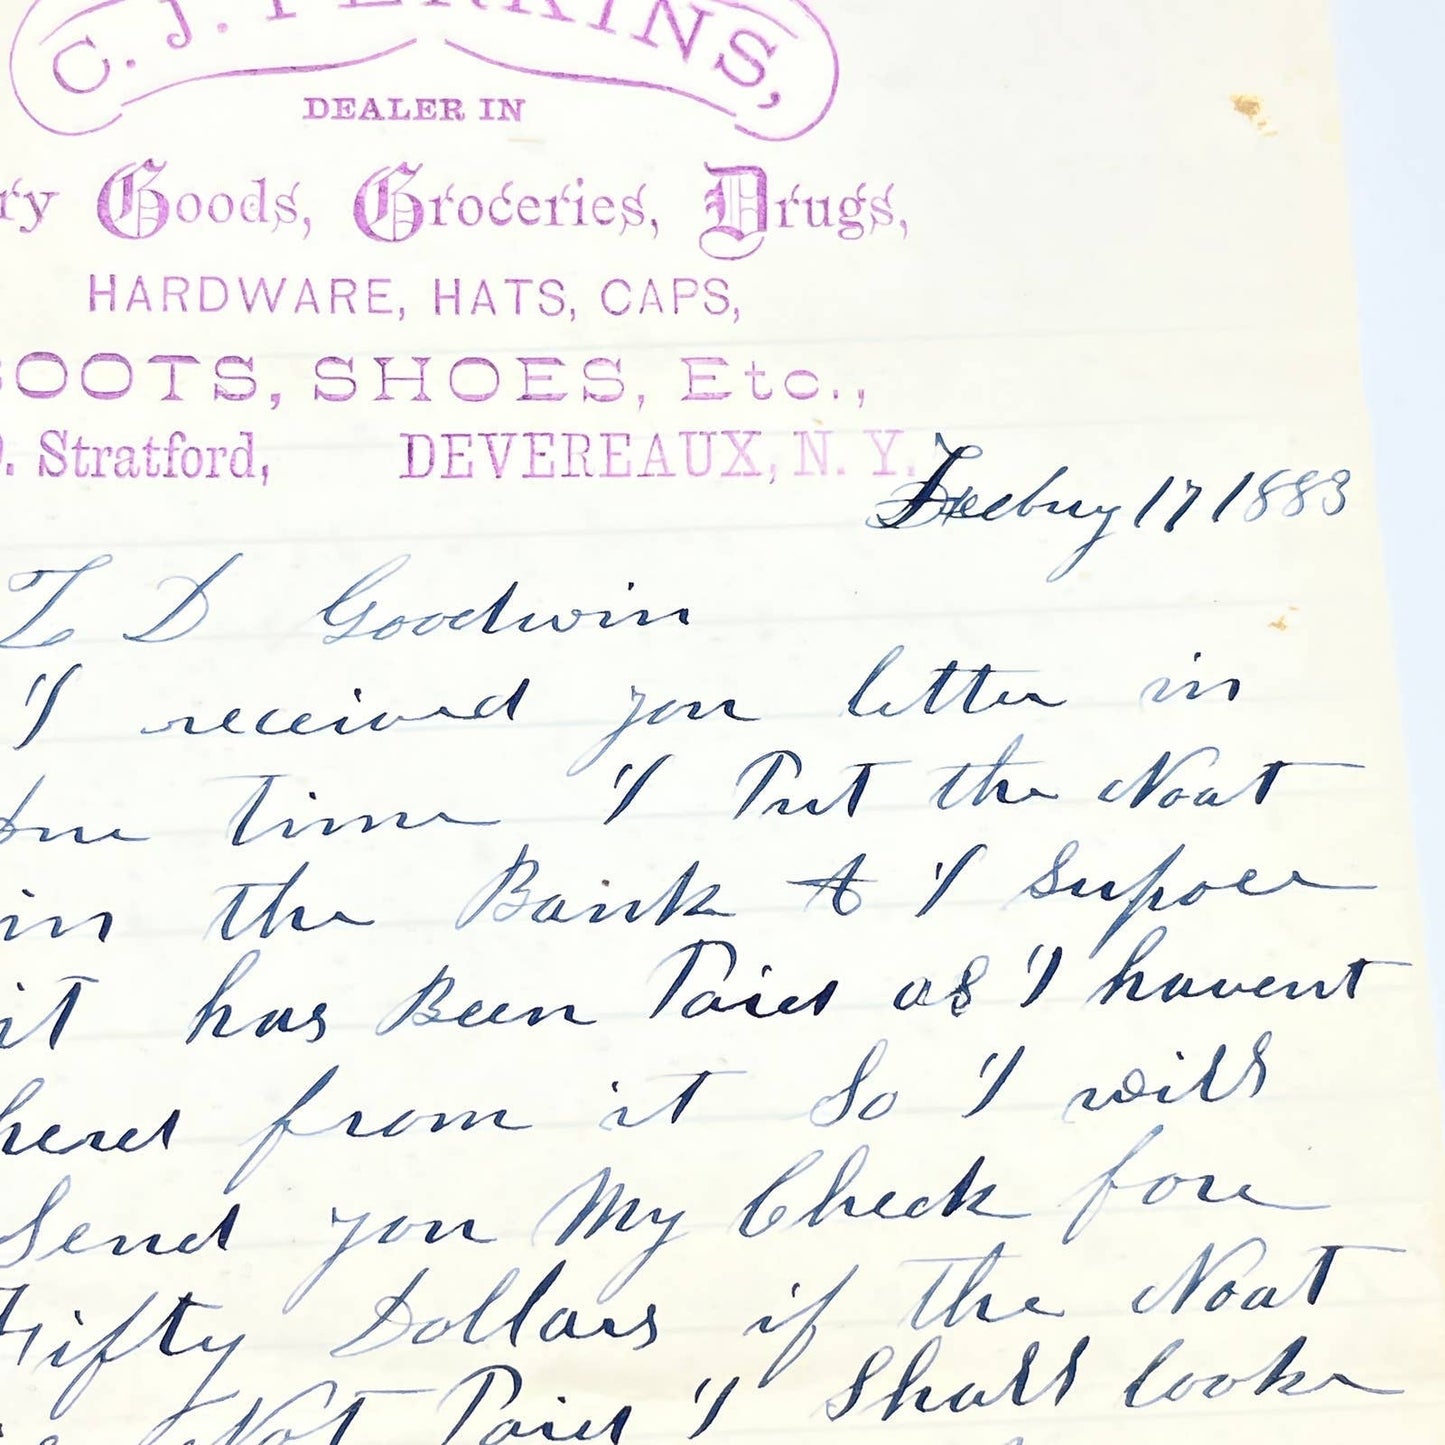 C. J. PERKINS,
DEALER IN
ry Goods, Groceries, Drugs,
HARDWARE, HATS, CAPS,
BOOTS, SHOES, Etc.,
O. Stratford, DEVEREAUX, N. Y.
Feebuy 17 1883
Z D Goodwin
I received you letter in
Due Time I Put the Noat
in the Bank & I Supoce
it has Been Paied as I havent
herd from it So I will
Send you My Check fore
Fifty Dollars if the Noat
is Not Paied I Shall looke